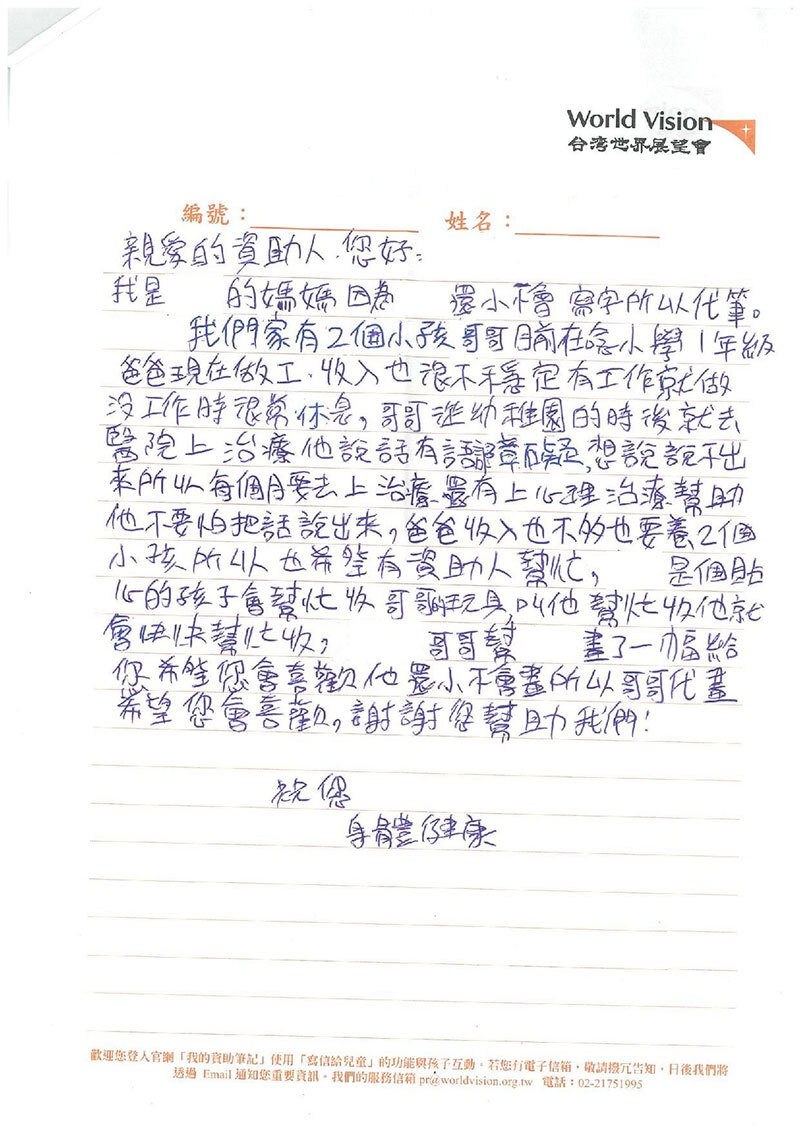 World Vision
台灣世界展望會
編號：
姓名：
親愛的資助人.您好:
我是 的媽媽因為 還小不會寫字所以代筆。
我們家有2個小孩哥哥目前在唸小學1年級
爸爸現在做工.收入也很不穩定有工作就做
沒工作時很常休息,哥哥進幼稚園的時後就去
醫院上治療他說話有語障礙,想說說不出
來所以每個月要去上治療還有上心理治療幫助
他不要怕把話說出來,爸爸收入也不多也要養2個
小孩所以也希望有資助人幫忙, 是個貼
心的孩子會幫忙收哥哥的玩具叫他幫忙收他就
會快快幫忙收, 哥哥幫 畫了一幅給
您希望您會喜歡他還小不會畫所以哥哥代畫
希望您會喜歡,謝謝您幫助我們!
祝您
身體健康
歡迎您登入官網「我的資助筆記」使用「寫信給兒童」的功能與孩子互動。若您有電子信箱，敬請撥冗告知，日後我們將
透過 Email 通知您重要資訊。我們的服務信箱 pr@worldvision.org.tw 電話：02-21751995